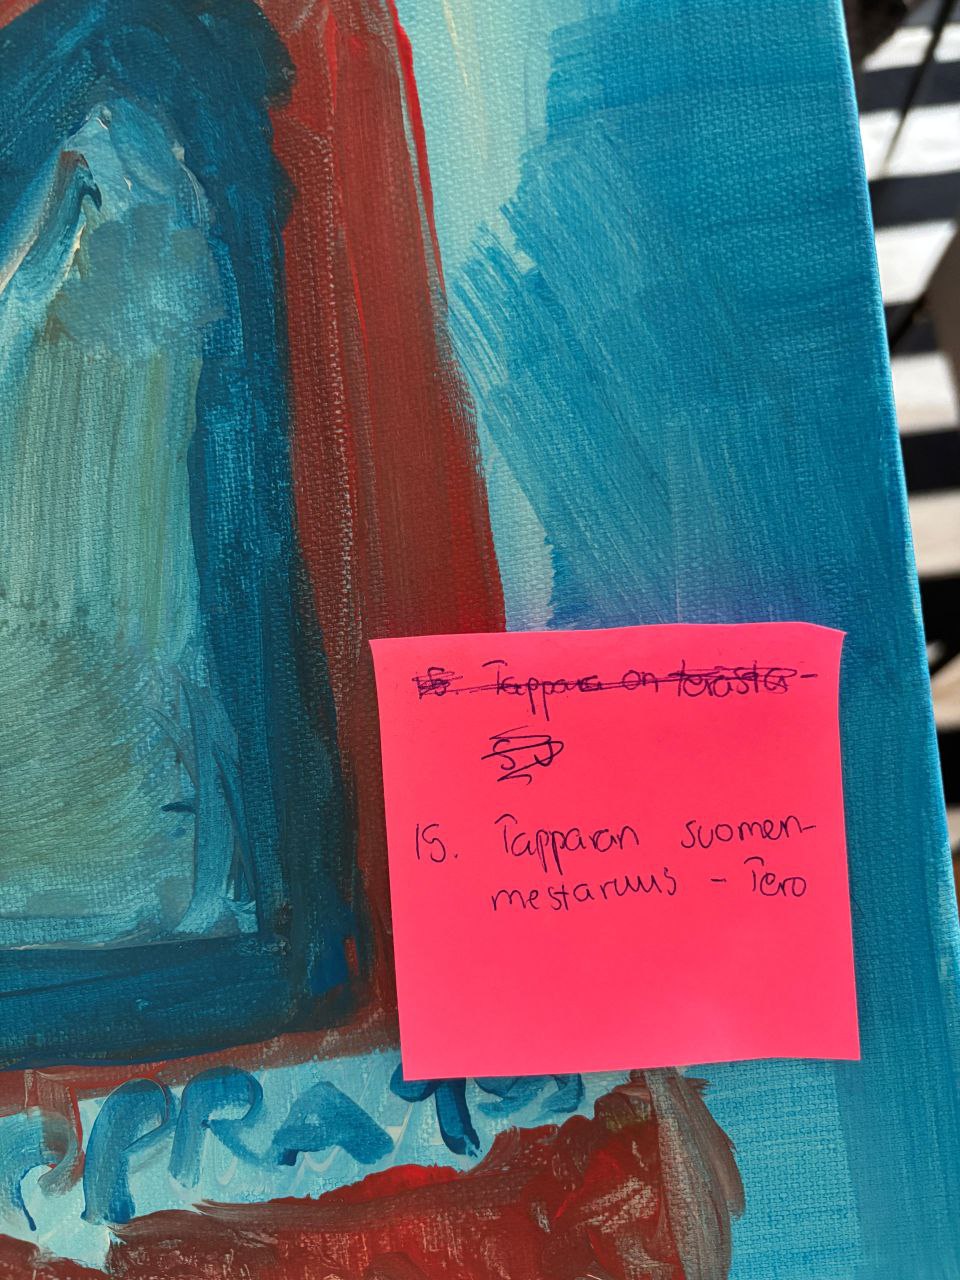 15. Tappara on terästä -
SJ
15. Tapparan suomen-
mestaruus - Tero
PPRATUS